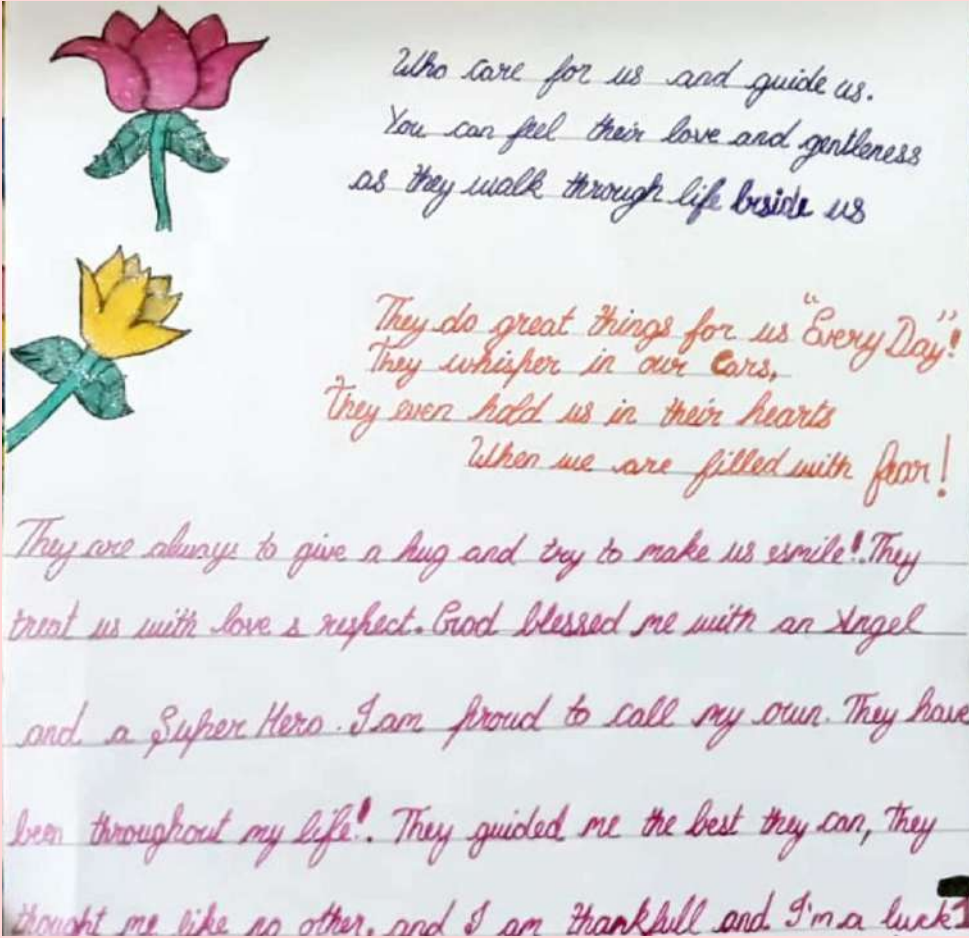 Who care for us and guide us.
You can feel their love and gentleness
as they walk through life beside us
They do great things for us "Every Day"!
They whisper in our Ears,
They even hold us in their hearts
When we are filled with fear!
They are always to give a hug and try to make us esmile!. They
treat us with love & respect. God blessed me with an Angel
and a Super Hero. I am proud to call my own. They have
been throughout my life!. They guided me the best they can, They
thought me like no other, and I am thankfull and I'm a luck